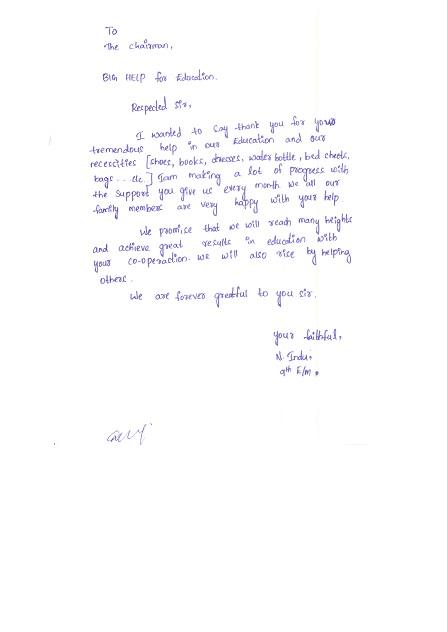 To
The chairman,
BIG HELP for Education.
Respected Sir,
I wanted to say thank you for your
tremendous help in our Education and our
necessities [shoes, books, dresses, water bottle, bed sheets,
bags... etc.] I am making a lot of progress with
the support you give us every month we all our
family members are very happy with your help
We promise that we will reach many heights
and achieve great results in education with
your co-operaction. we will also rise by helping
others.
We are forever greatful to you sir.
your faithful,
N. Indu,
9th E/m.